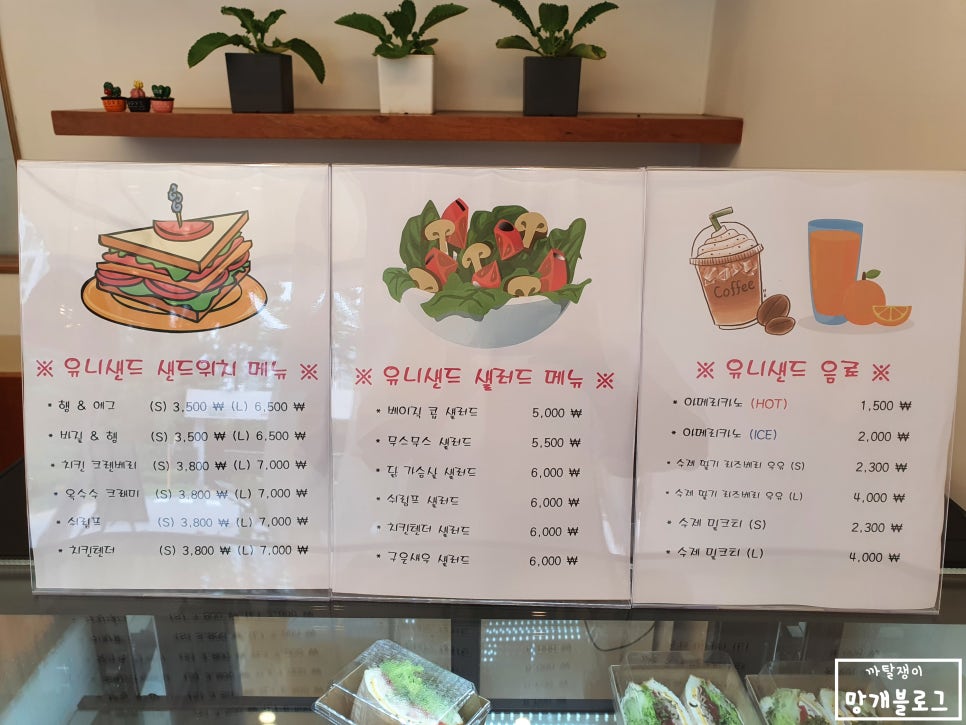 Coffee
※ 유니샌드 샌드위치 메뉴 ※
* 햄 & 에그 (S) 3,500 ₩ (L) 6,500 ₩
* 비질 & 햄 (S) 3,500 ₩ (L) 6,500 ₩
* 치킨 크랜베리 (S) 3,800 ₩ (L) 7,000 ₩
* 옥수수 크래미 (S) 3,800 ₩ (L) 7,000 ₩
* 쉬림프 (S) 3,800 ₩ (L) 7,000 ₩
* 치킨텐더 (S) 3,800 ₩ (L) 7,000 ₩
※ 유니샌드 샐러드 메뉴 ※
* 베이직 콥 샐러드 5,000 ₩
* 무스무스 샐러드 5,500 ₩
* 닭 가슴살 샐러드 6,000 ₩
* 쉬림프 샐러드 6,000 ₩
* 치킨텐더 샐러드 6,000 ₩
* 구운새우 샐러드 6,000 ₩
※ 유니샌드 음료 ※
* 아메리카노 (HOT) 1,500 ₩
* 아메리카노 (ICE) 2,000 ₩
* 수제 딸기 라즈베리 우유 (S) 2,300 ₩
* 수제 딸기 라즈베리 우유 (L) 4,000 ₩
* 수제 밀크티 (S) 2,300 ₩
* 수제 밀크티 (L) 4,000 ₩
까탈쟁이
망개블로그